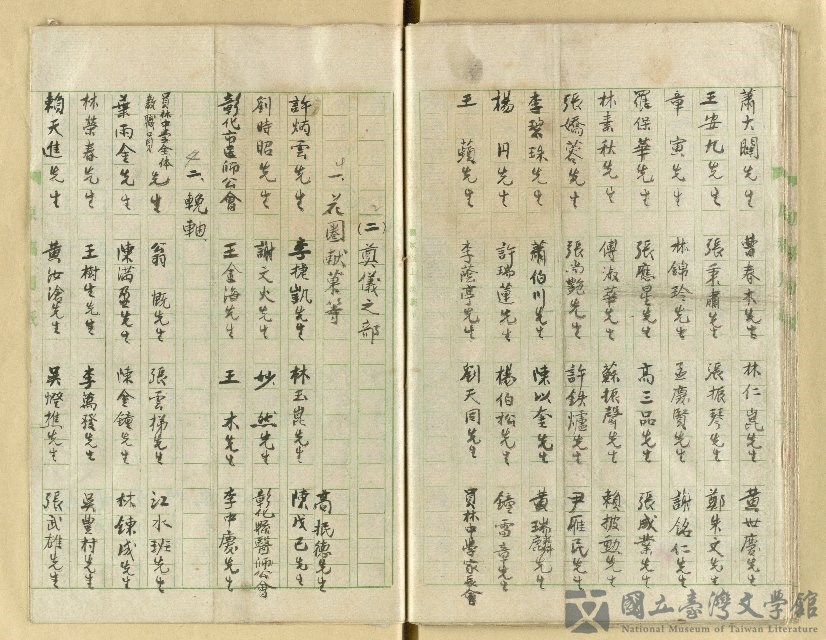 蕭大闊先生 曹春木先生 林仁崑先生 黃世慶先生
王安九先生 張秉肅先生 張振琴先生 鄭朱文先生
章寅先生 林錦玲先生 孟慶賢先生 謝銘仁先生
羅保華先生 張應星先生 高三品先生 張成業先生
林素秋先生 傅淑華先生 蘇振聲先生 賴披勁先生
張嬌蓉先生 張尚艷先生 許鉄爐先生 尹雁民先生
李碧珠先生 蕭伯川先生 陳以奎先生 黃瑞麟先生
楊丹先生 許瑞蓮先生 楊伯松先生 鐘雷音先生
王蘋先生 李蔭亭先生 劉天同先生 員林中學家長會
(二)奠儀之部
一、花圈獻菓等
高振德先生
許炳雲先生 李捷凱先生 林玉崑先生 陳戊己先生
劉時昭先生 謝文火先生 妙然先生 彰化縣醫師公會
彰化市医師公會 王金海先生 王木先生 李中慶先生
二、輓軸
員林中学全体教職員先生 翁慨先生 張雲梯先生 江水班先生
葉雨金先生 陳滿盈先生 陳金鐘先生 林鍊成先生
林榮春先生 王樹生先生 李萬發先生 吳豐村先生
賴天進先生 黃汝滄先生 吳燈㨗先生 張武雄先生
國立臺灣文學館
National Museum of Taiwan Literature